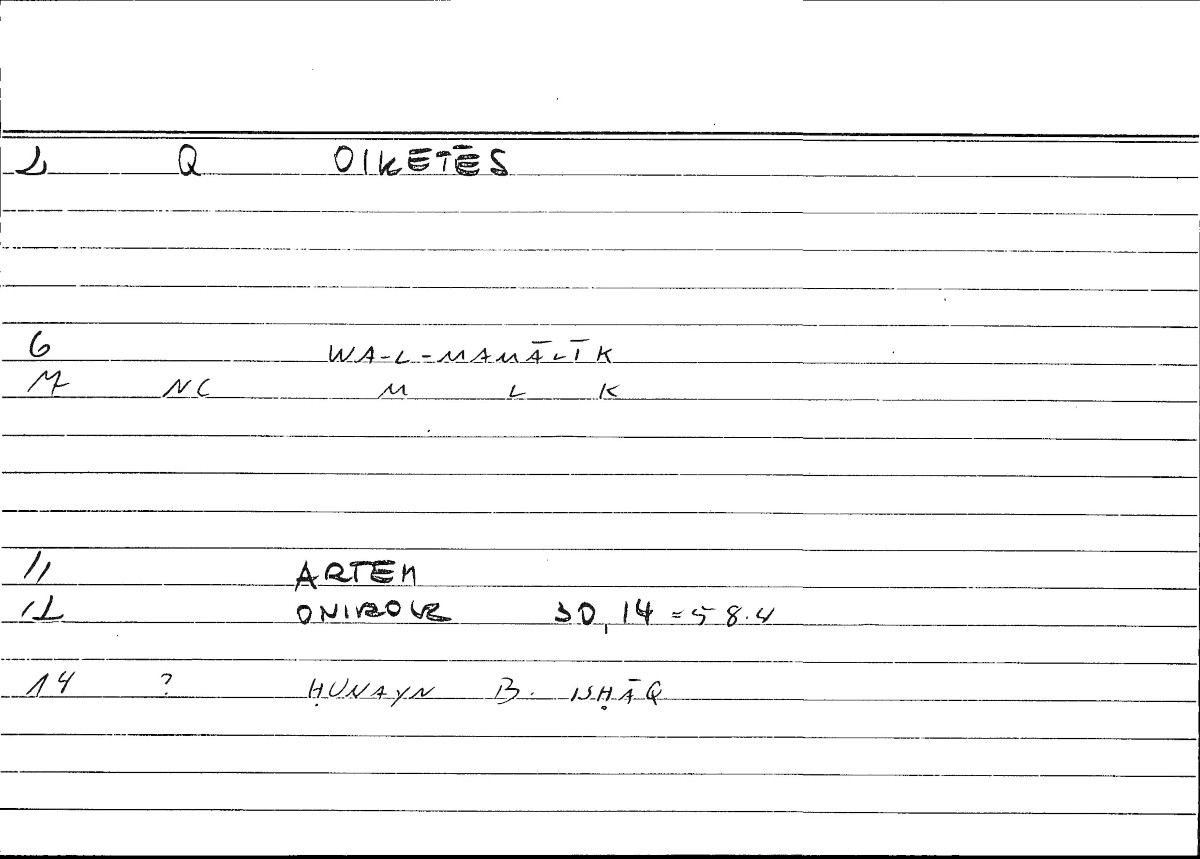 2 Q OIKETĒS
6 WA-L-MAMĀLĪK
7 NC M L K
11 ARTEM
12 ONIROCR 30,14 = 58.4
14 ? ḤUNAYN B. ISḤĀQ